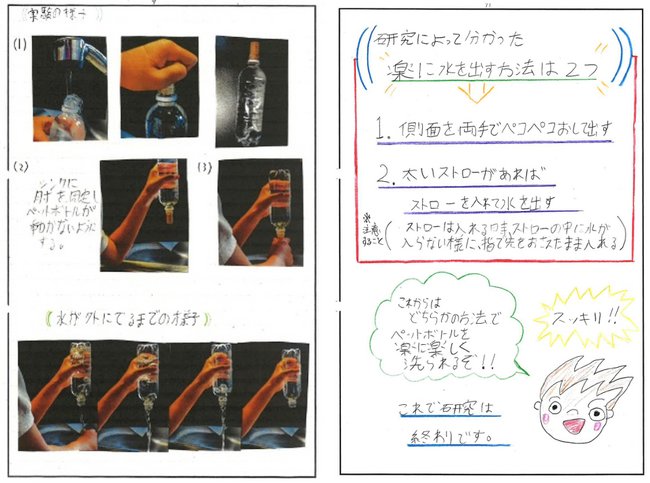 実験の様子
(1)
(2)
シンクに
肘を固定し
ペットボトルが
動かないように
する。
(3)
水が外にでるまでの様子
研究によって分かった
楽に水を出す方法は2つ
1. 側面を両手でペコペコおして出す
2. 太いストローがあれば
ストローを入れて水を出す
※注意すること
(ストローは入れる時、ストローの中に水が
入らない様に、指で先をおさえたまま入れる)
これからは
どちらかの方法で
ペットボトルを
楽に楽しく
洗られるぞ!!
スッキリ!!
これで研究は
終わりです。